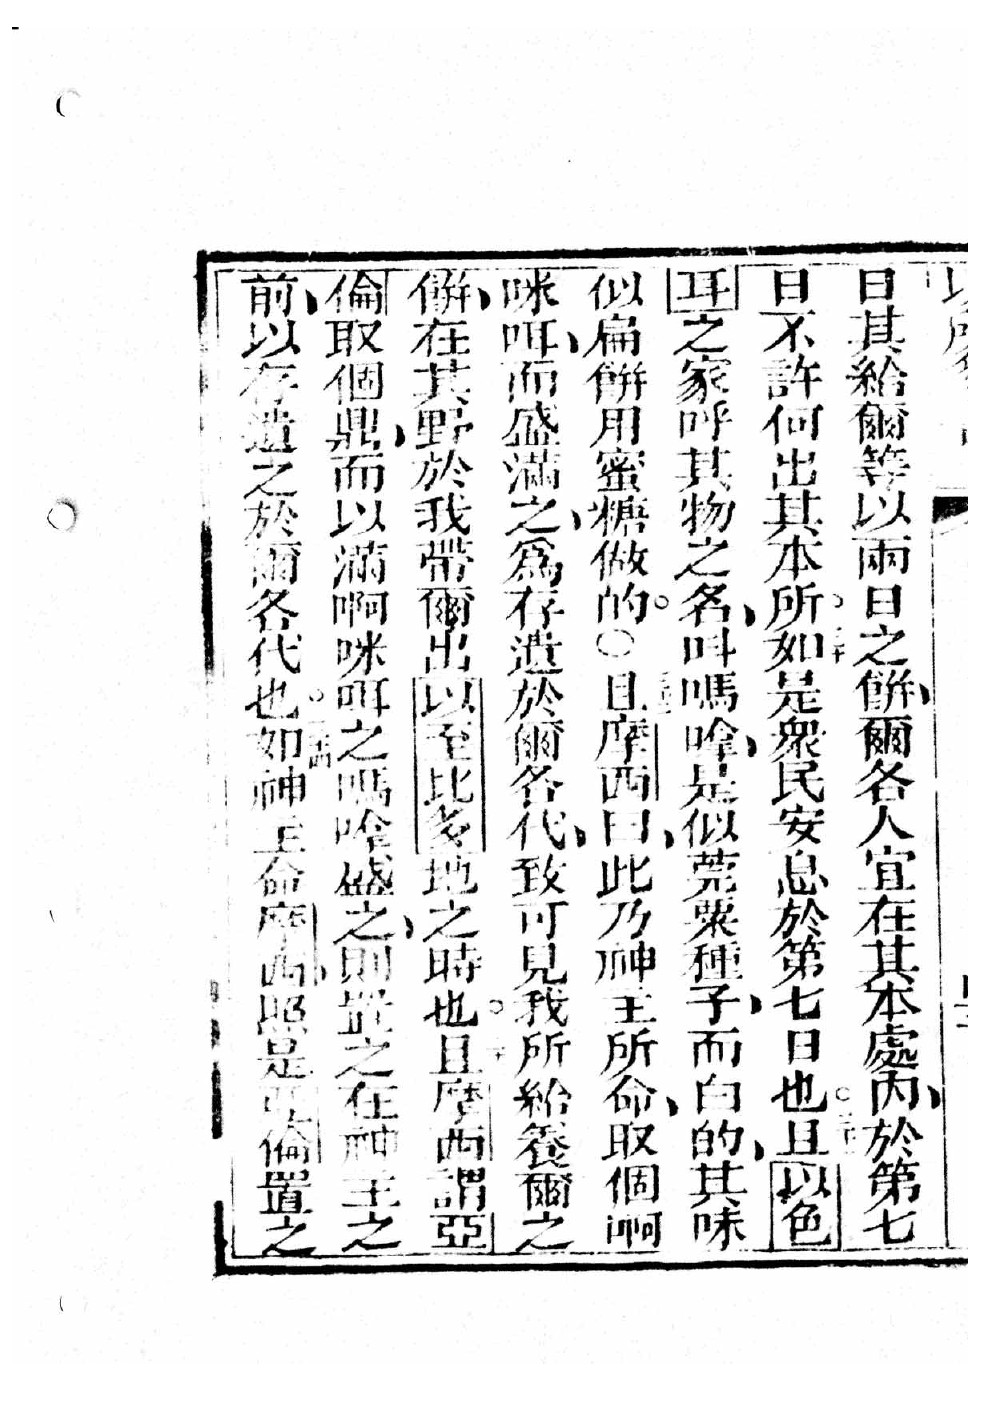 日其給爾等以兩日之餅、爾各人宜在其本處內、於第七
日不許何出其本所。如是眾民安息於第七日也。且以色
耳之家呼其物之名、叫嗎嗱、是似莞粟種子、而白的、其味
似扁餅用蜜糖做的。〇且摩西曰、此乃神王所命、取個啊
咪咡、而盛滿之、為存遺於爾各代、致可見我所給養爾之
餅、在其野於我帶爾出以至比多地之時也。且摩西謂亞
倫取個鼎、而以滿啊咪咡之嗎嗱盛之、則置之在神王之
前、以存遺之於爾各代也。如神王命摩西、照是亞倫置之